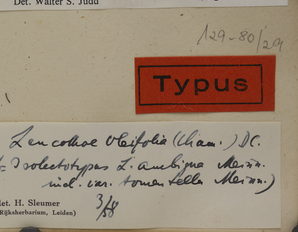 Det. Walter S. Judd
129-80/29
Typus
Leucothoe oleifolia (Cham.) DC.
Isolectotypus L. ambigua Meissn.
incl. var. tomentella Meissn.)
det. H. Sleumer
(Rijksherbarium, Leiden)
3/58